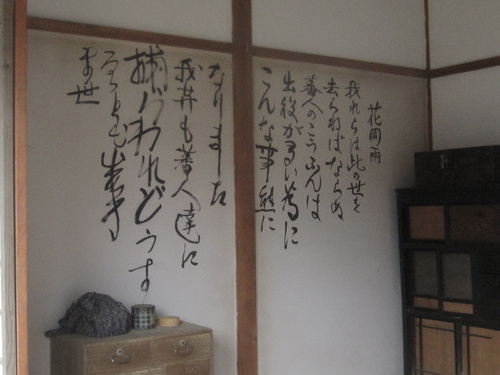 花岡雨
我れらは此の世を
去らねばならぬ
蕃人のこうふんは
出役が多い為に
こんな事態に
なりました
我等も蕃人達に
捕はわれどうす
ることも出来ず